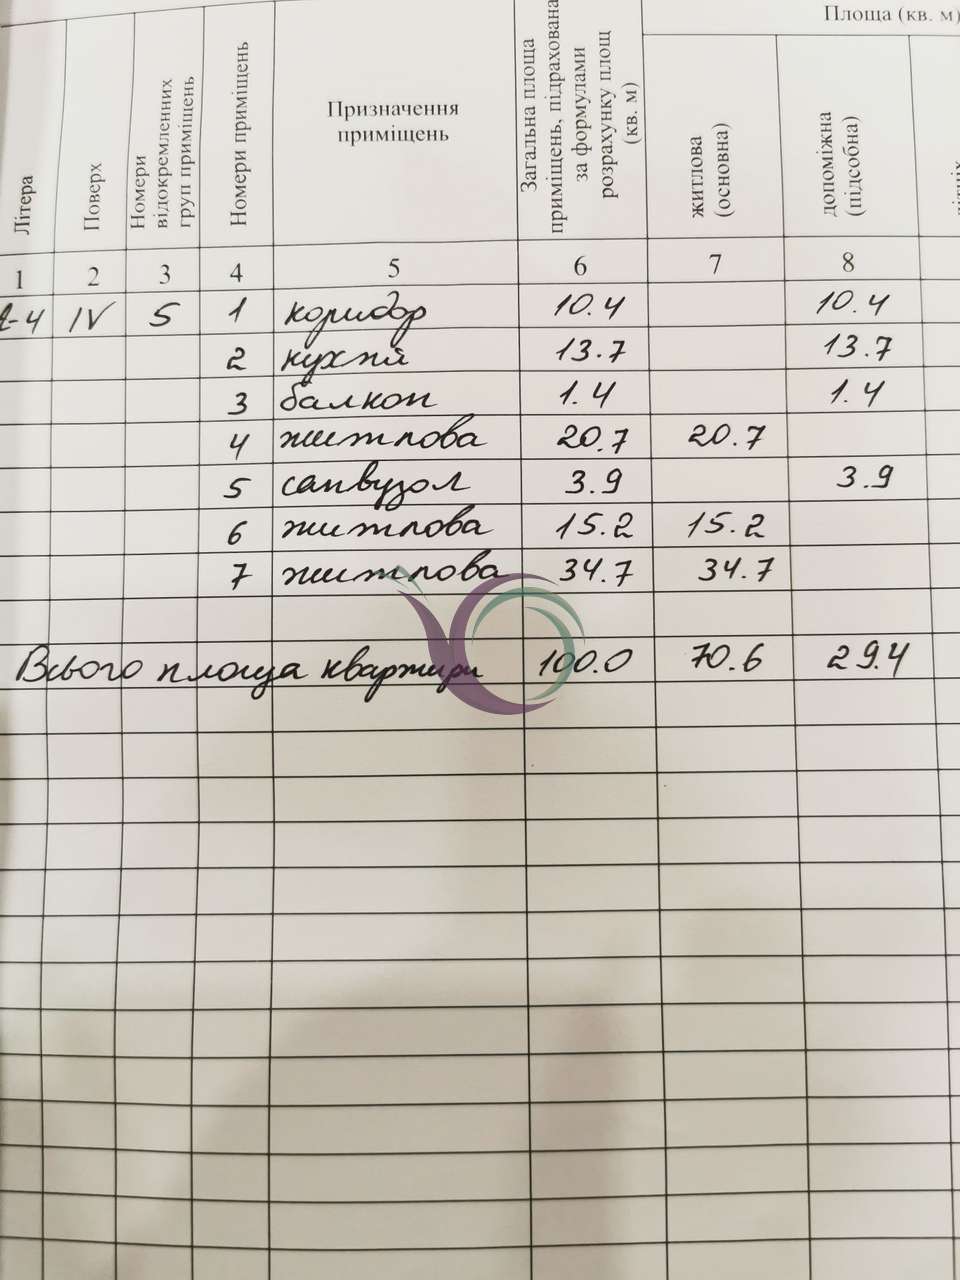 Площа (кв. м)
Літера
Поверх
Номери відокремленних груп приміщень
Номери приміщень
Призначення приміщень
Загальна площа приміщень, підрахована за формулами розрахунку площ (кв. м)
житлова (основна)
допоміжна (підсобна)
1 2 3 4 5 6 7 8
-4 IV 5 1 коридор 10.4 10.4
2 кухня 13.7 13.7
3 балкон 1.4 1.4
4 житлова 20.7 20.7
5 санвузол 3.9 3.9
6 житлова 15.2 15.2
7 житлова 34.7 34.7
Всього площа квартири 100.0 70.6 29.4